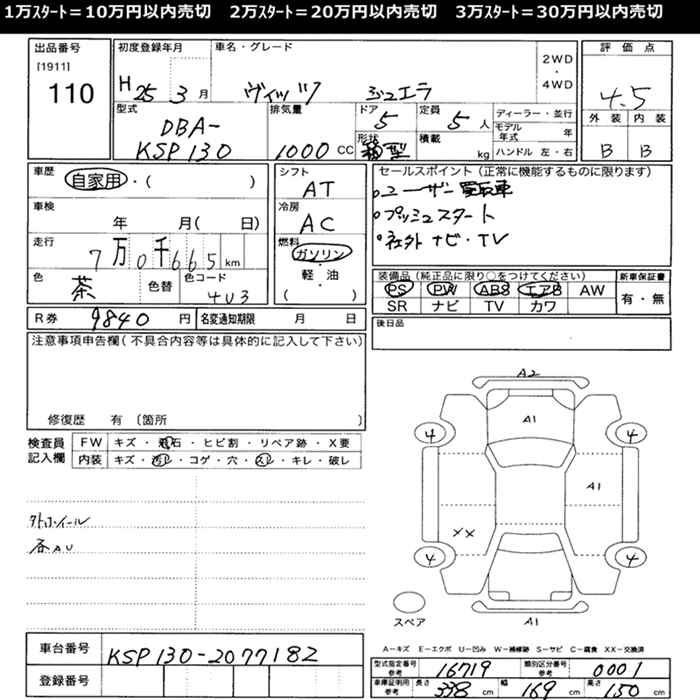 1万ｽﾀｰﾄ＝10万円以内売切 2万ｽﾀｰﾄ＝20万円以内売切 3万ｽﾀｰﾄ＝30万円以内売切
出品番号
[1911]
110
初度登録年月
H 25 3 月
車名・グレード
ヴィッツ ジュエラ
2WD
・
4WD
評価点
4.5
外装 内装
B B
型式
DBA-
KSP130
排気量
1000 CC
ドア
5
形状
箱型
定員
5 人
積載
kg
ディーラー・並行
モデル年式 年
ハンドル 左・右
車歴
自家用・( )
車検
年 月( 日)
走行
7万0千665 km
色
茶 色替
色コード
4U3
シフト
AT
冷房
AC
燃料
ガソリン
・
軽・油
( )
セールスポイント (正常に機能するものに限ります)
○ユーザー買取車
○プッシュスタート
○社外ナビ・TV
装備品 (純正品に限り○をつけてください)
PS PW ABS エアB AW
SR ナビ TV カワ
新車保証書
有・無
後日品
R券 9840 円 名変通知期限 月 日
注意事項申告欄 (不具合内容等は具体的に記入して下さい)
修復歴 有 〔箇所 〕
検査員記入欄
FW キズ・飛石・ヒビ割・リペア跡・X要
内装 キズ・汚レ・コゲ・穴・スレ・キレ・破レ
タイヤホイール
各AU
A2
A1
4 4
A1
XX
4 4
スペア
A1
A－キズ E－エクボ U－凹み W－補修跡 S－サビ C－腐食 XX－交換済
車台番号 KSP130-2077182
登録番号
型式指定番号参考 16719 類別区分番号参考 0001
車庫証明用参考 長さ 398 cm 幅 169 cm 高さ 150 cm